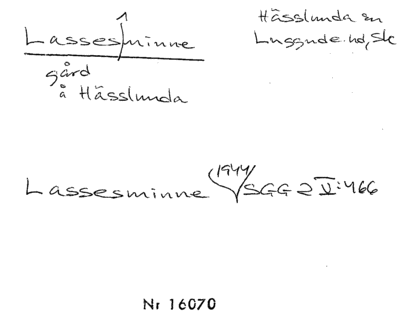 Lassesminne
gård
å Hässlunda
Hässlunda sn
Luggude hd, Sk
Lassesminne (1944) SGG 2 V:466
Nr 16070